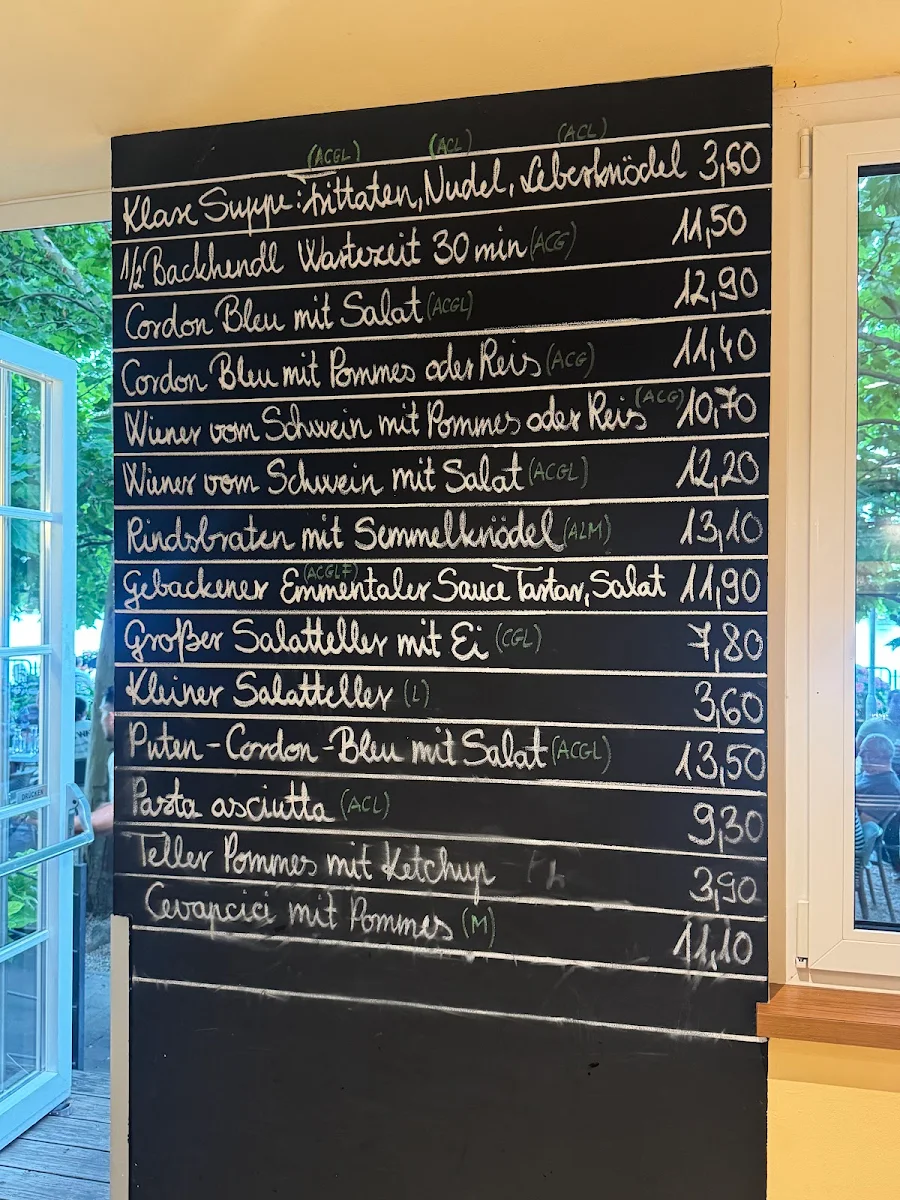 (ACGL) (ACL) (ACL)
Klare Suppe: Frittaten, Nudel, Leberknödel 3,60
1/2 Backhendl Wartezeit 30 min (ACG) 11,50
Cordon Bleu mit Salat (ACGL) 12,90
Cordon Bleu mit Pommes oder Reis (ACG) 11,40
Wiener vom Schwein mit Pommes oder Reis (ACG) 10,70
Wiener vom Schwein mit Salat (ACGL) 12,20
Rindsbraten mit Semmelknödel (ALM) 13,10
Gebackener Emmentaler Sauce Tartar, Salat (ACGLF) 11,90
Großer Salatteller mit Ei (CGL) 7,80
Kleiner Salatteller (L) 3,60
Puten-Cordon-Bleu mit Salat (ACGL) 13,50
Pasta asciutta (ACL) 9,30
Teller Pommes mit Ketchup 3,90
Cevapcici mit Pommes (M) 11,10
DRÜCKEN